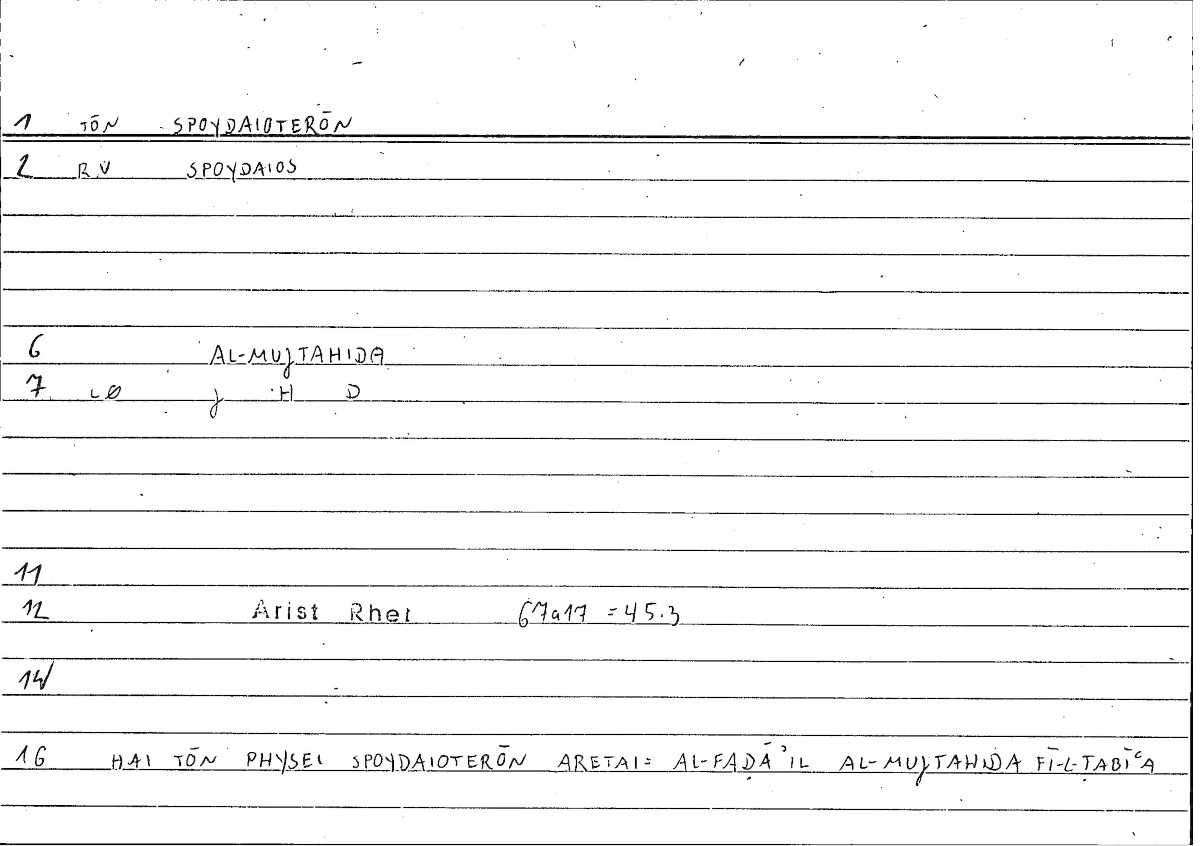 1 TŌN SPOYDAIOTERŌN
2 RV SPOYDAIOS
6 AL-MUJTAHIDA
7 LØ J H D
11
12 Arist Rhet 67a17 =45.3
14
16 HAI TŌN PHYSEI SPOYDAIOTERŌN ARETAI = AL-FAḌĀʾIL AL-MUJTAHIDA FĪ-L-ṬABĪʿA